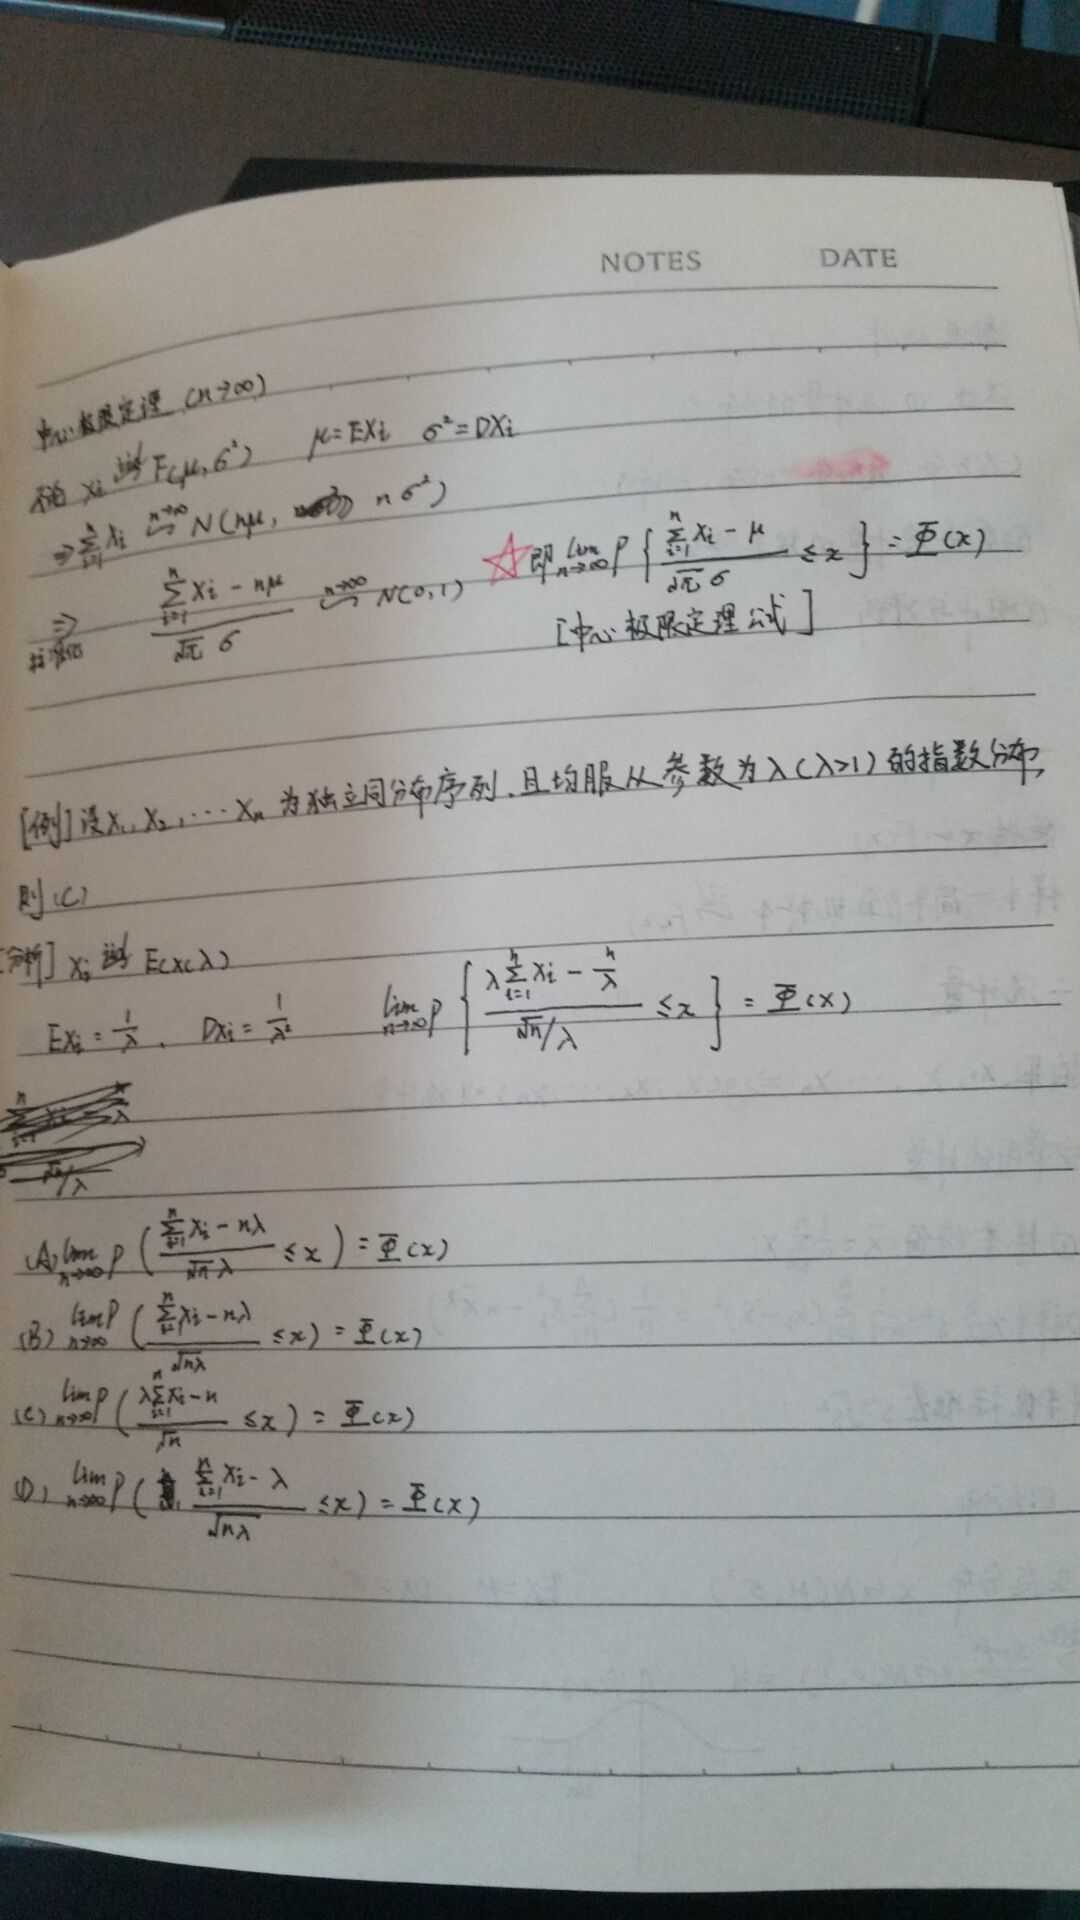 NOTES DATE
中心极限定理 (n→∞)
Xi iid F(μ,σ²) μ=EXi σ²=DXi
⇒ ∑_{i=1}^{n} Xi ~^{n→∞} N(nμ, nσ²)
⇒ (∑_{i=1}^{n} Xi - nμ)/(√n σ) ~^{n→∞} N(0,1) ☆即 lim_{n→∞} P{(∑_{i=1}^{n} Xi - μ)/(√n σ) ≤ x} = Φ(x)
[中心极限定理公式]
[例] 设X₁, X₂, ⋯ Xn 为独立同分布序列, 且均服从参数为λ(λ>1)的指数分布,
则(C)
[分析] Xi iid E(X(λ)
EXi = 1/λ, DXi = 1/λ² lim_{n→∞} P{(λ∑_{i=1}^{n} Xi - n/λ)/(√n/λ) ≤ x} = Φ(x)
(A) lim_{n→∞} P((∑_{i=1}^{n} Xi - nλ)/(√n λ) ≤ x) = Φ(x)
(B) lim_{n→∞} P((∑_{i=1}^{n} Xi - nλ)/√(nλ) ≤ x) = Φ(x)
(C) lim_{n→∞} P((λ∑_{i=1}^{n} Xi - n)/√n ≤ x) = Φ(x)
(D) lim_{n→∞} P((∑_{i=1}^{n} Xi - λ)/√(nλ) ≤ x) = Φ(x)